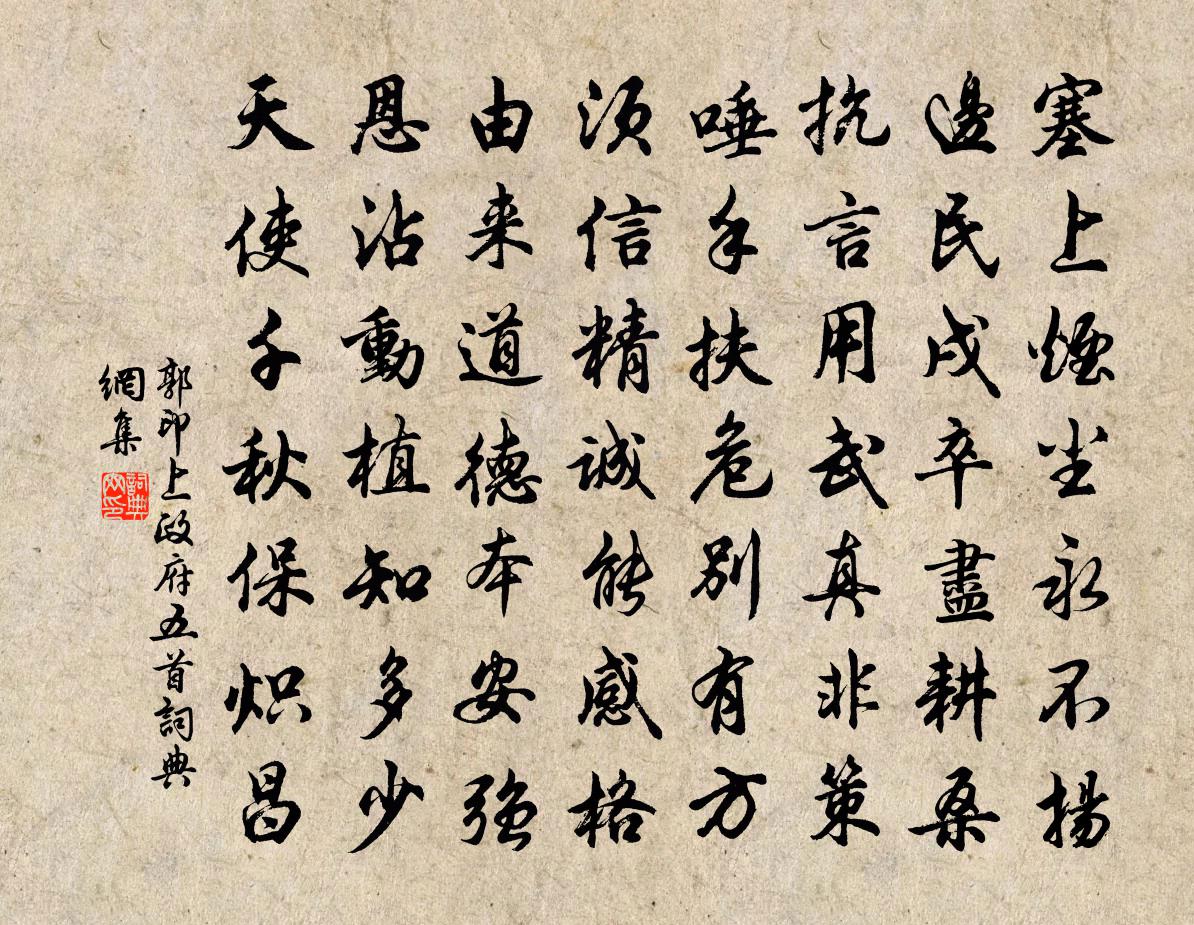 塞上煙尘永不揚
邊民戍卒盡耕桑
抗言用武真非策
唾手扶危別有方
須信精誠能感格
由来道德本安強
恩沾動植知多少
天使千秋保炽昌
郭印上政府五首詞典
網集
詞典網印